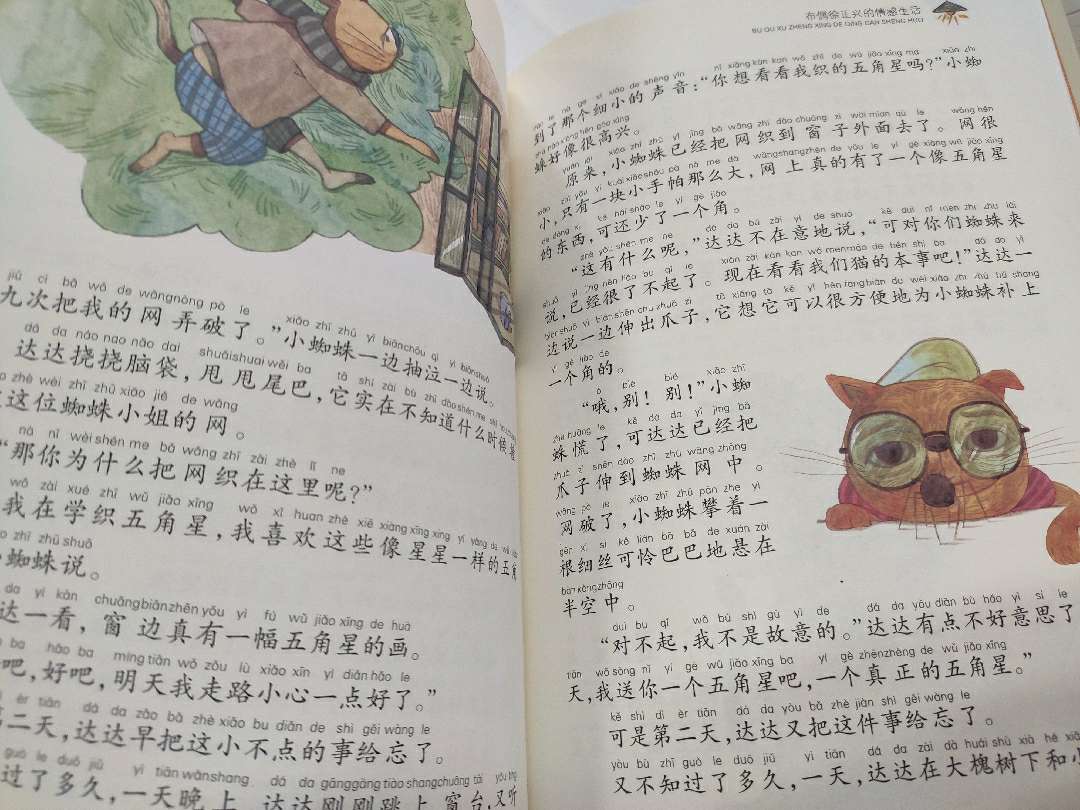 jiǔ cì bǎ wǒ de wǎng nòng pò le xiǎo zhī zhū yì biān chōu qì yì biān shuō
九次把我的网弄破了。”小蜘蛛一边抽泣一边说。
dá da náo nao nǎo dai shuǎi shuai wěi ba tā shí zài bù zhī dào shén me
达达挠挠脑袋，甩甩尾巴，它实在不知道什么时候
zhè wèi zhī zhū xiǎo jiě de wǎng
这位蜘蛛小姐的网。
nà nǐ wèi shén me bǎ wǎng zhī zài zhè lǐ ne
“那你为什么把网织在这里呢？”
wǒ zài xué zhī wǔ jiǎo xīng wǒ xǐ huan zhè xiē xiàng xīng xing yí yàng de wǔ
我在学织五角星，我喜欢这些像星星一样的五
zhī zhū shuō
蜘蛛说。
da yí kàn chuāng biān zhēn yǒu yì fú wǔ jiǎo xīng de huà
达一看，窗边真有一幅五角星的画。
ba hǎo ba míng tiān wǒ zǒu lù xiǎo xīn yì diǎn hǎo le
吧，好吧，明天我走路小心一点好了。”
èr tiān dá da zǎo bǎ zhè xiǎo bu diǎn de shì gěi wàng le
第二天，达达早把这小不点的事给忘了。
guò le duō jiǔ yì tiān wǎn shang dá da gāng gāng tiào shang chuāng tái yòu
过了多久，一天晚上，达达刚刚跳上窗台，又听
布偶徐正兴的情感生活
BU OU XU ZHENG XING DE QING GAN SHENG HUO
nà ge xì xiǎo de shēng yīn nǐ xiǎng kàn kan wǒ zhī de wǔ jiǎo xīng ma xiǎo zhī
到了那个细小的声音：“你想看看我织的五角星吗？”小蜘
蛛好像很高兴。
yuán lái xiǎo zhī zhū yǐ jīng bǎ wǎng zhī dào chuāng zi wài mian qù le wǎng hěn
原来，小蜘蛛已经把网织到窗子外面去了。网很
xiǎo zhǐ yǒu yí kuài xiǎo shǒu pà nà me dà wǎng shang zhēn de yǒu le yí gè xiàng wǔ jiǎo xīng
小，只有一块小手帕那么大，网上真的有了一个像五角星
de dōng xi kě hái shǎo le yí gè jiǎo
的东西，可还少了一个角。
zhè yǒu shén me ne dá da bú zài yì de shuō kě duì nǐ men zhī zhū lái
“这有什么呢，”达达不在意地说，“可对你们蜘蛛来
shuō yǐ jīng hěn liǎo bu qǐ le xiàn zài kàn kan wǒ men māo de běn shi ba dá da yì
说，已经很了不起了。现在看看我们猫的本事吧！”达达一
biān shuō yì biān shēn chū zhuǎ zi tā xiǎng tā kě yǐ hěn fāng biàn de wèi xiǎo zhī zhū bǔ shang
边说一边伸出爪子，它想它可以很方便地为小蜘蛛补上
yí gè jiǎo de
一个角的。
ò bié bié xiǎo zhī
“哦，别！别！”小蜘
zhū huāng le kě dá da yǐ jīng bǎ
蛛慌了，可达达已经把
zhuǎ zi shēn dào zhī zhū wǎng zhōng
爪子伸到蜘蛛网中。
wǎng pò le xiǎo zhī zhū pān zhe yì
网破了，小蜘蛛攀着一
gēn xì sī kě lián bā bā de xuán zài
根细丝可怜巴巴地悬在
bàn kōng zhōng
半空中。
duì bu qǐ wǒ bú shì gù yì de dá da yǒu diǎn bù hǎo yì si le
“对不起，我不是故意的。”达达有点不好意思了
tiān wǒ sòng nǐ yí ge wǔ jiǎo xīng ba yí gè zhēn zhèng de wǔ jiǎo xīng
天，我送你一个五角星吧，一个真正的五角星。”
kě shì dì èr tiān dá da yòu bǎ zhè jiàn shì gěi wàng le
可是第二天，达达又把这件事给忘了。
yòu bù zhī guò le duō jiǔ yì tiān dá da zài dà huái shù xià hé
又不知过了多久，一天，达达在大槐树下和小